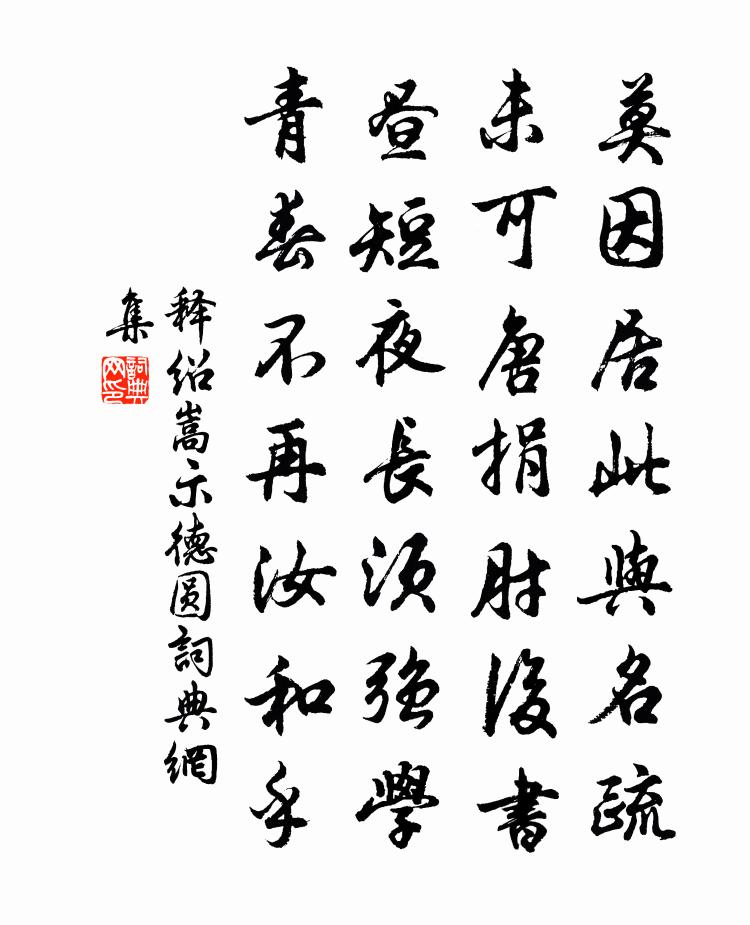 莫因居此與名疏
未可唐捐肘後書
昼短夜長須強學
青春不再汝和乎
释紹嵩示德圓詞典網
集
詞典
网印